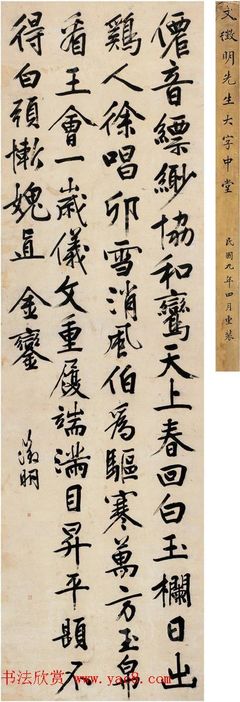 文徵明先生大字中堂
民國九年四月重裝
僊音縹緲協和鸞天上春回白玉欄日出
鷄人徐唱卯雪消風伯爲驅寒萬方玉帛
看王會一歲儀文重履端滿目昇平題不
得白頭慚媿直金鑾
徵明
书法欣赏 www.yac8.com